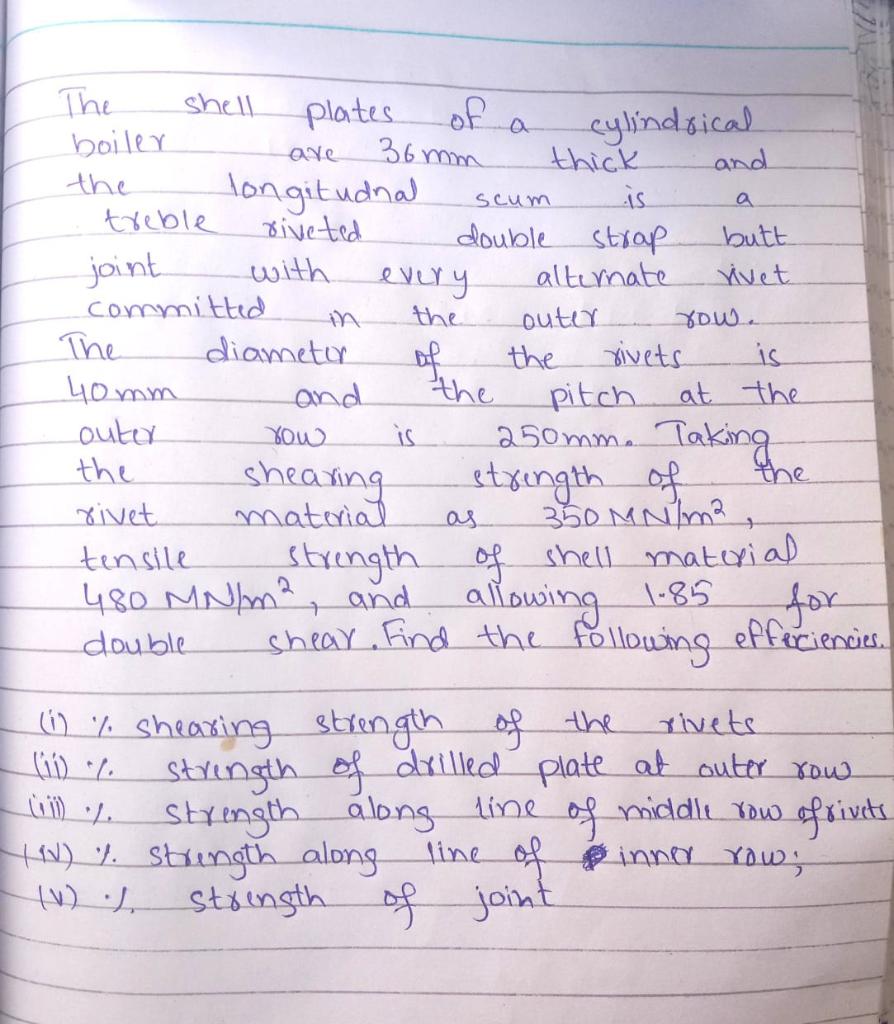 The shell plates of a cylindrical
boiler are 36 mm thick and
the longitudnal scum is a
treble riveted double strap butt
joint with every alternate rivet
committed in the outer row.
The diameter of the rivets is
40 mm and the pitch at the
outer row is 250mm. Taking
the shearing strength of the
rivet material as 350 MN/m²,
tensile strength of shell material
480 MN/m², and allowing 1.85 for
double shear. Find the following efferciencies.
(i) % shearing strength of the rivets
(ii) % strength of drilled plate at outer row
(iii) % strength along line of middle row of rivets
(iv) % strength along line of inner row;
(v) % strength of joint